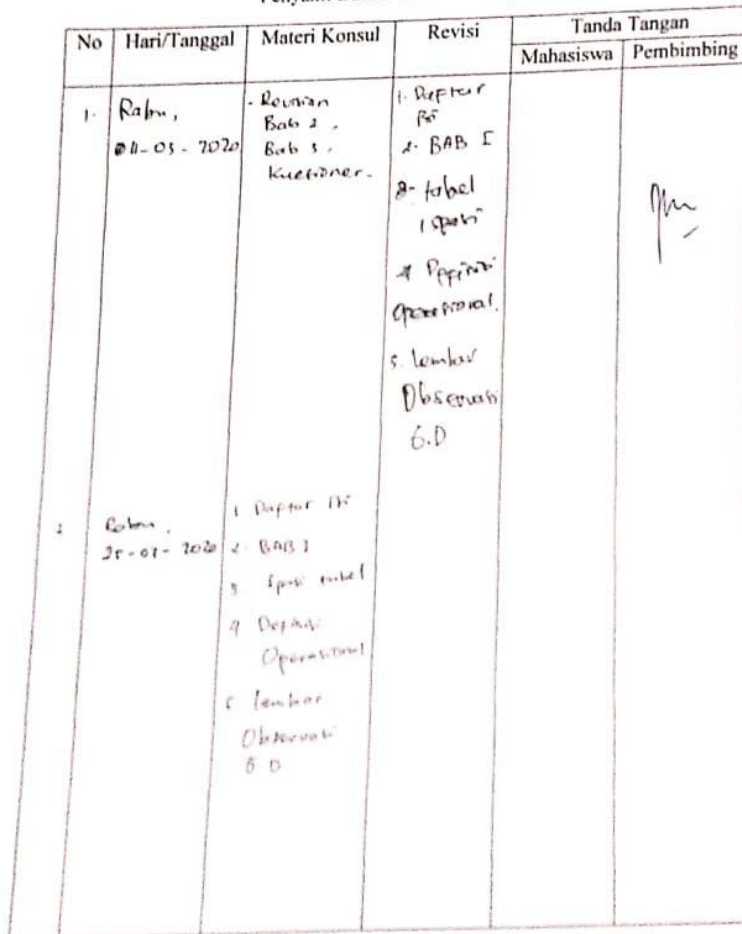 No Hari/Tanggal Materi Konsul Revisi Tanda Tangan
Mahasiswa Pembimbing
1. Rabu,
04-03-2020
- Revisian
Bab 2,
Bab 3,
Kuesioner.
1. Daftar
Isi
2. BAB I
3. tabel
1 spasi
4 Definisi
Operasional.
5. lembar
Observasi
6.D
2 Rabu,
2020
1 Daftar Isi
2. BAB 1
3 Spasi tabel
4 Definisi
Operasional
5 lembar
Observasi
6 D